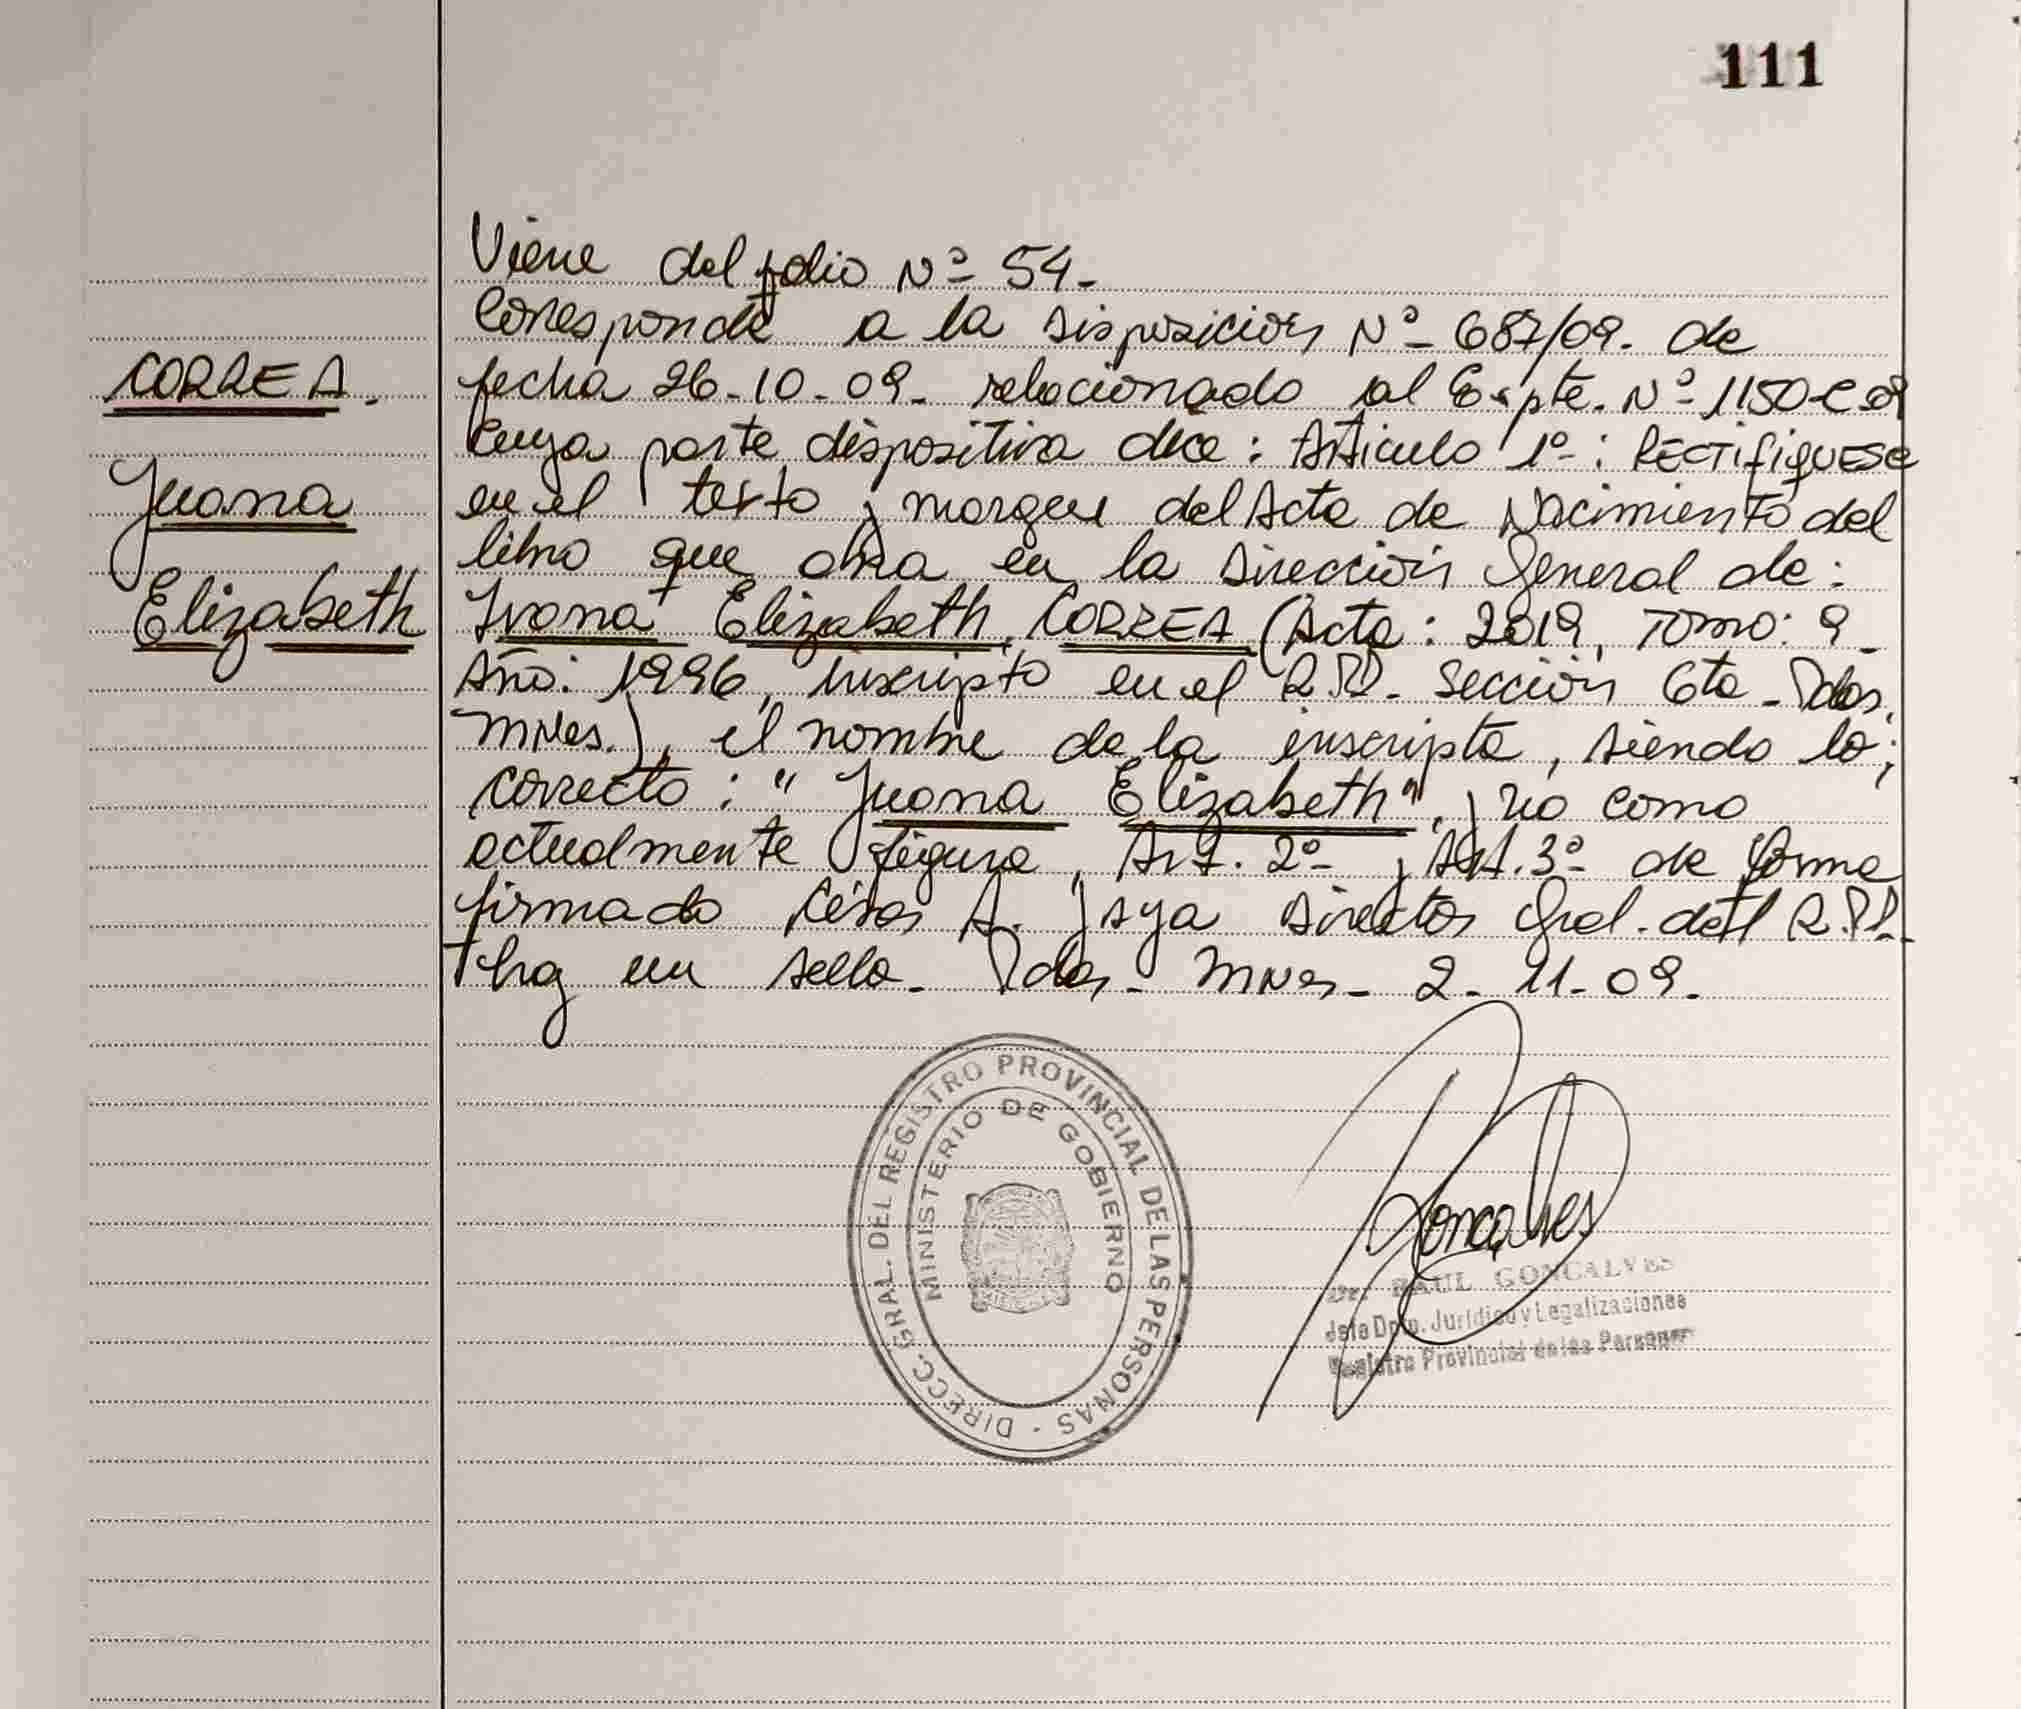 111
Viene del folio Nº 54.
Corresponde a la Disposicion Nº 687/09. de
CORREA.
fecha 26-10-09. relacionado al Expte. Nº 1150-C-09
Cuya parte dispositiva dice: Articulo 1º: RECTIFIQUESE
Juana
en el texto y margen del Acta de Nacimiento del
libro que obra en la Dirección General de:
Elizabeth
Ivana Elizabeth, CORREA (Acta: 2019, Tomo: 9
Año: 1996, inscripto en el R.P.P. Sección 6ta - Pdas.
Mnes.), el nombre de la inscripta, siendo lo
correcto: "Juana Elizabeth", y no como
actualmente figura, Art. 2º y Art. 3º de forma
firmado César A. Director Gral. del R.P.P.
Hay un sello. Pdas. Mnes. 2-11-09.
DIRECC. GRAL. DEL REGISTRO PROVINCIAL DE LAS PERSONAS -
MINISTERIO DE GOBIERNO
Goncalves
Dr. RAUL GONCALVES
Jefe Dpto. Jurídico y Legalizaciones
Registro Provincial de las Personas